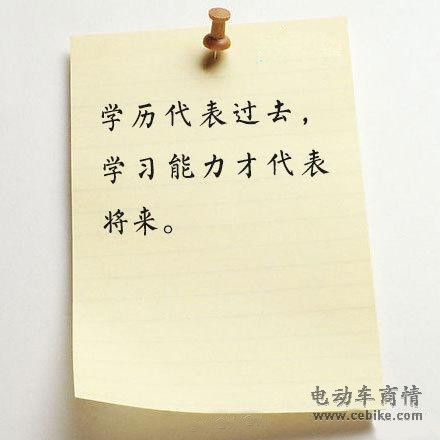 学历代表过去，
学习能力才代表
将来。
电动车商情
www.cebike.com